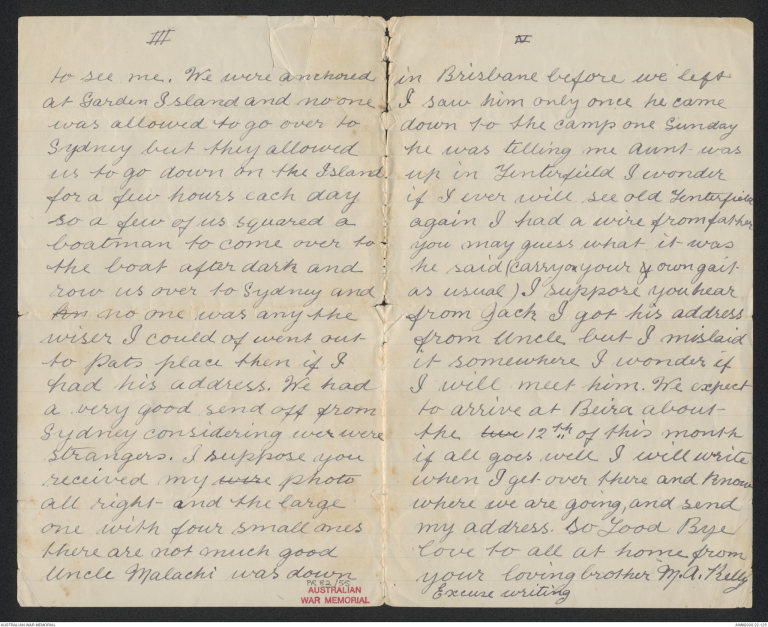 III
to see me. We were anchored
at Garden Island and no one
was allowed to go over to
Sydney but they allowed
us to go down on the Island
for a few hours each day
so a few of us squared a
boatman to come over to
the boat after dark and
row us over to Sydney and
no one was any the
wiser I could of went out
to Pats place then if I
had his address. We had
a very good send off from
Sydney considering wer were
strangers. I suppose you
received my wire photo
all right and the large
one with four small ones
there are not much good
Uncle Malachi was down
PR 82/55
AUSTRALIAN
WAR MEMORIAL
IV
in Brisbane before we left
I saw him only once he came
down to the camp one Sunday
he was telling me Aunt was
up in Tenterfield I wonder
if I ever will see old Tenterfield
again I had a wire from father
you may guess what it was
he said (carry on your own gait
as usual) I suppose you hear
from Jack I got his address
from Uncle but I mislaid
it somewhere I wonder if
I will meet him. We expect
to arrive at Beira about
the 12th of this month
if all goes well I will write
when I get over there and know
where we are going, and send
my address. So Good Bye
love to all at home from
your loving brother M.A. Kelly
Excuse writing
AUSTRALIAN WAR MEMORIAL